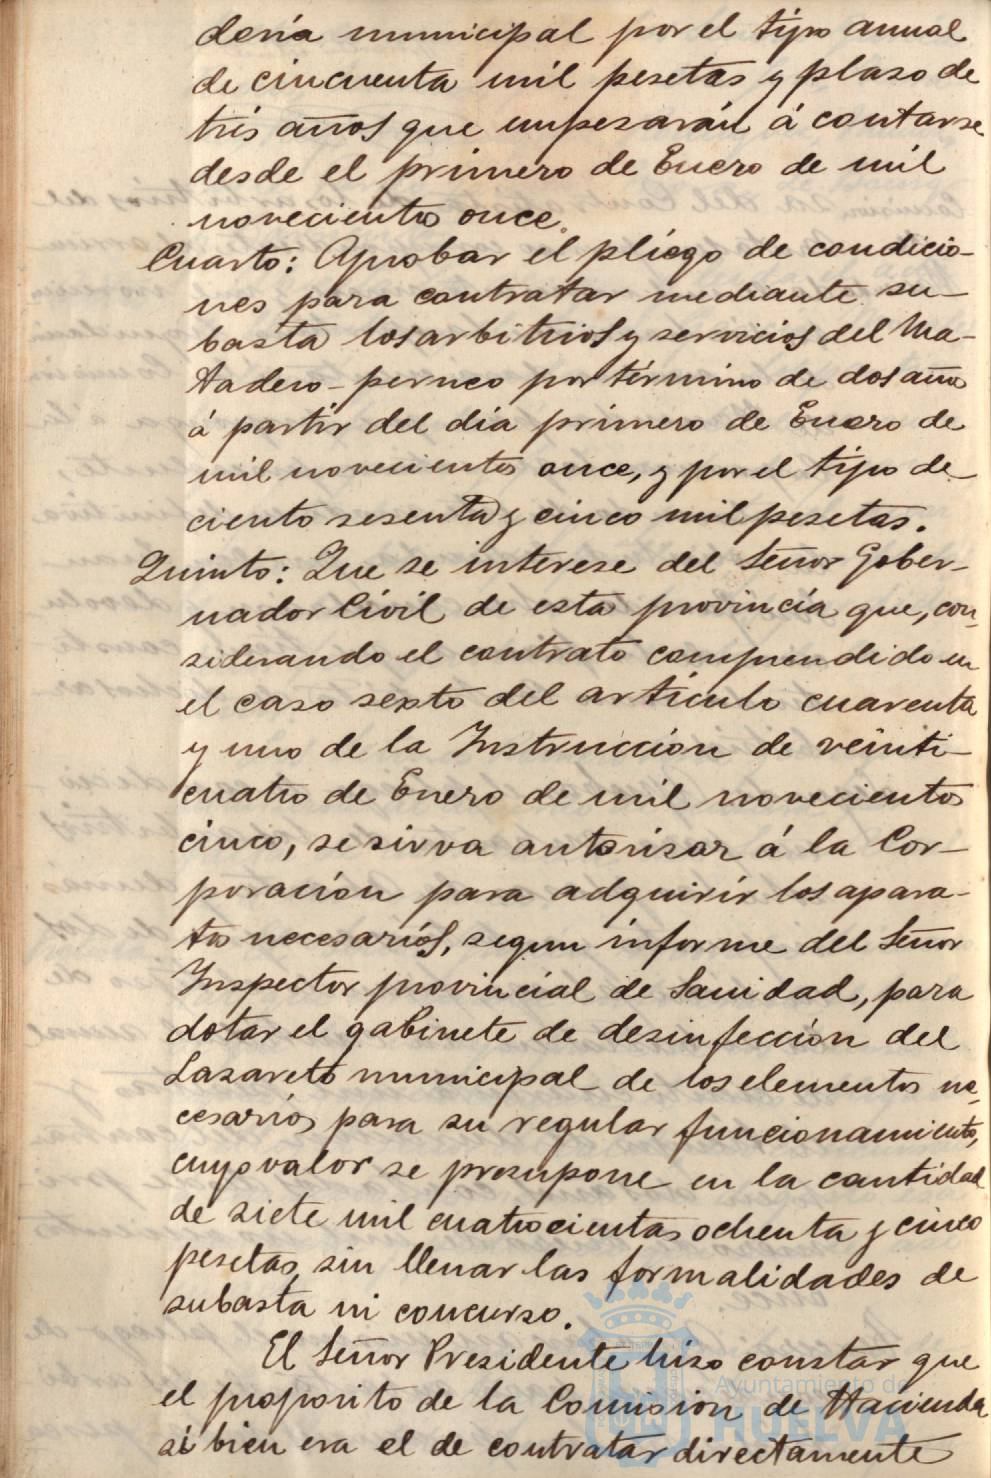 dería municipal por el tipo anual
de cincuenta mil pesetas y plaso de
trés años que empesarán á contarse
desde el primero de Enero de mil
novecientos once.
Cuarto: Aprobar el pliego de condicio-
nes para contratar mediante su-
basta los arbitrios y servicios del Ma-
tadero-perneo por término de dos años
á partir del dia primero de Enero de
mil novecientos once, y por el tipo de
ciento sesenta y cinco mil pesetas.
Quinto: Que se interese del Señor Gober-
nador Civil de esta provincia que, con-
siderando el contrato comprendido en
el caso sexto del artículo cuarenta
y uno de la Instrucción de veinti-
cuatro de Enero de mil novecientos
cinco, se sirva autorisar á la Cor-
poración para adquirir los apara-
tos necesarios, segun informe del Señor
Inspector provincial de Sanidad, para
dotar el gabinete de desinfección del
Lazareto municipal de los elementos ne-
cesarios para su regular funcionamiento,
cuyo valor se presupone en la cantidad
de siete mil cuatrocientas ochenta y cinco
pesetas, sin llenar las formalidades de
subasta ni concurso.
El Señor Presidente hiso constar que
el proposito de la Comision de Hacienda
si bien era el de contratar directamente
Ayuntamiento de
HUELVA